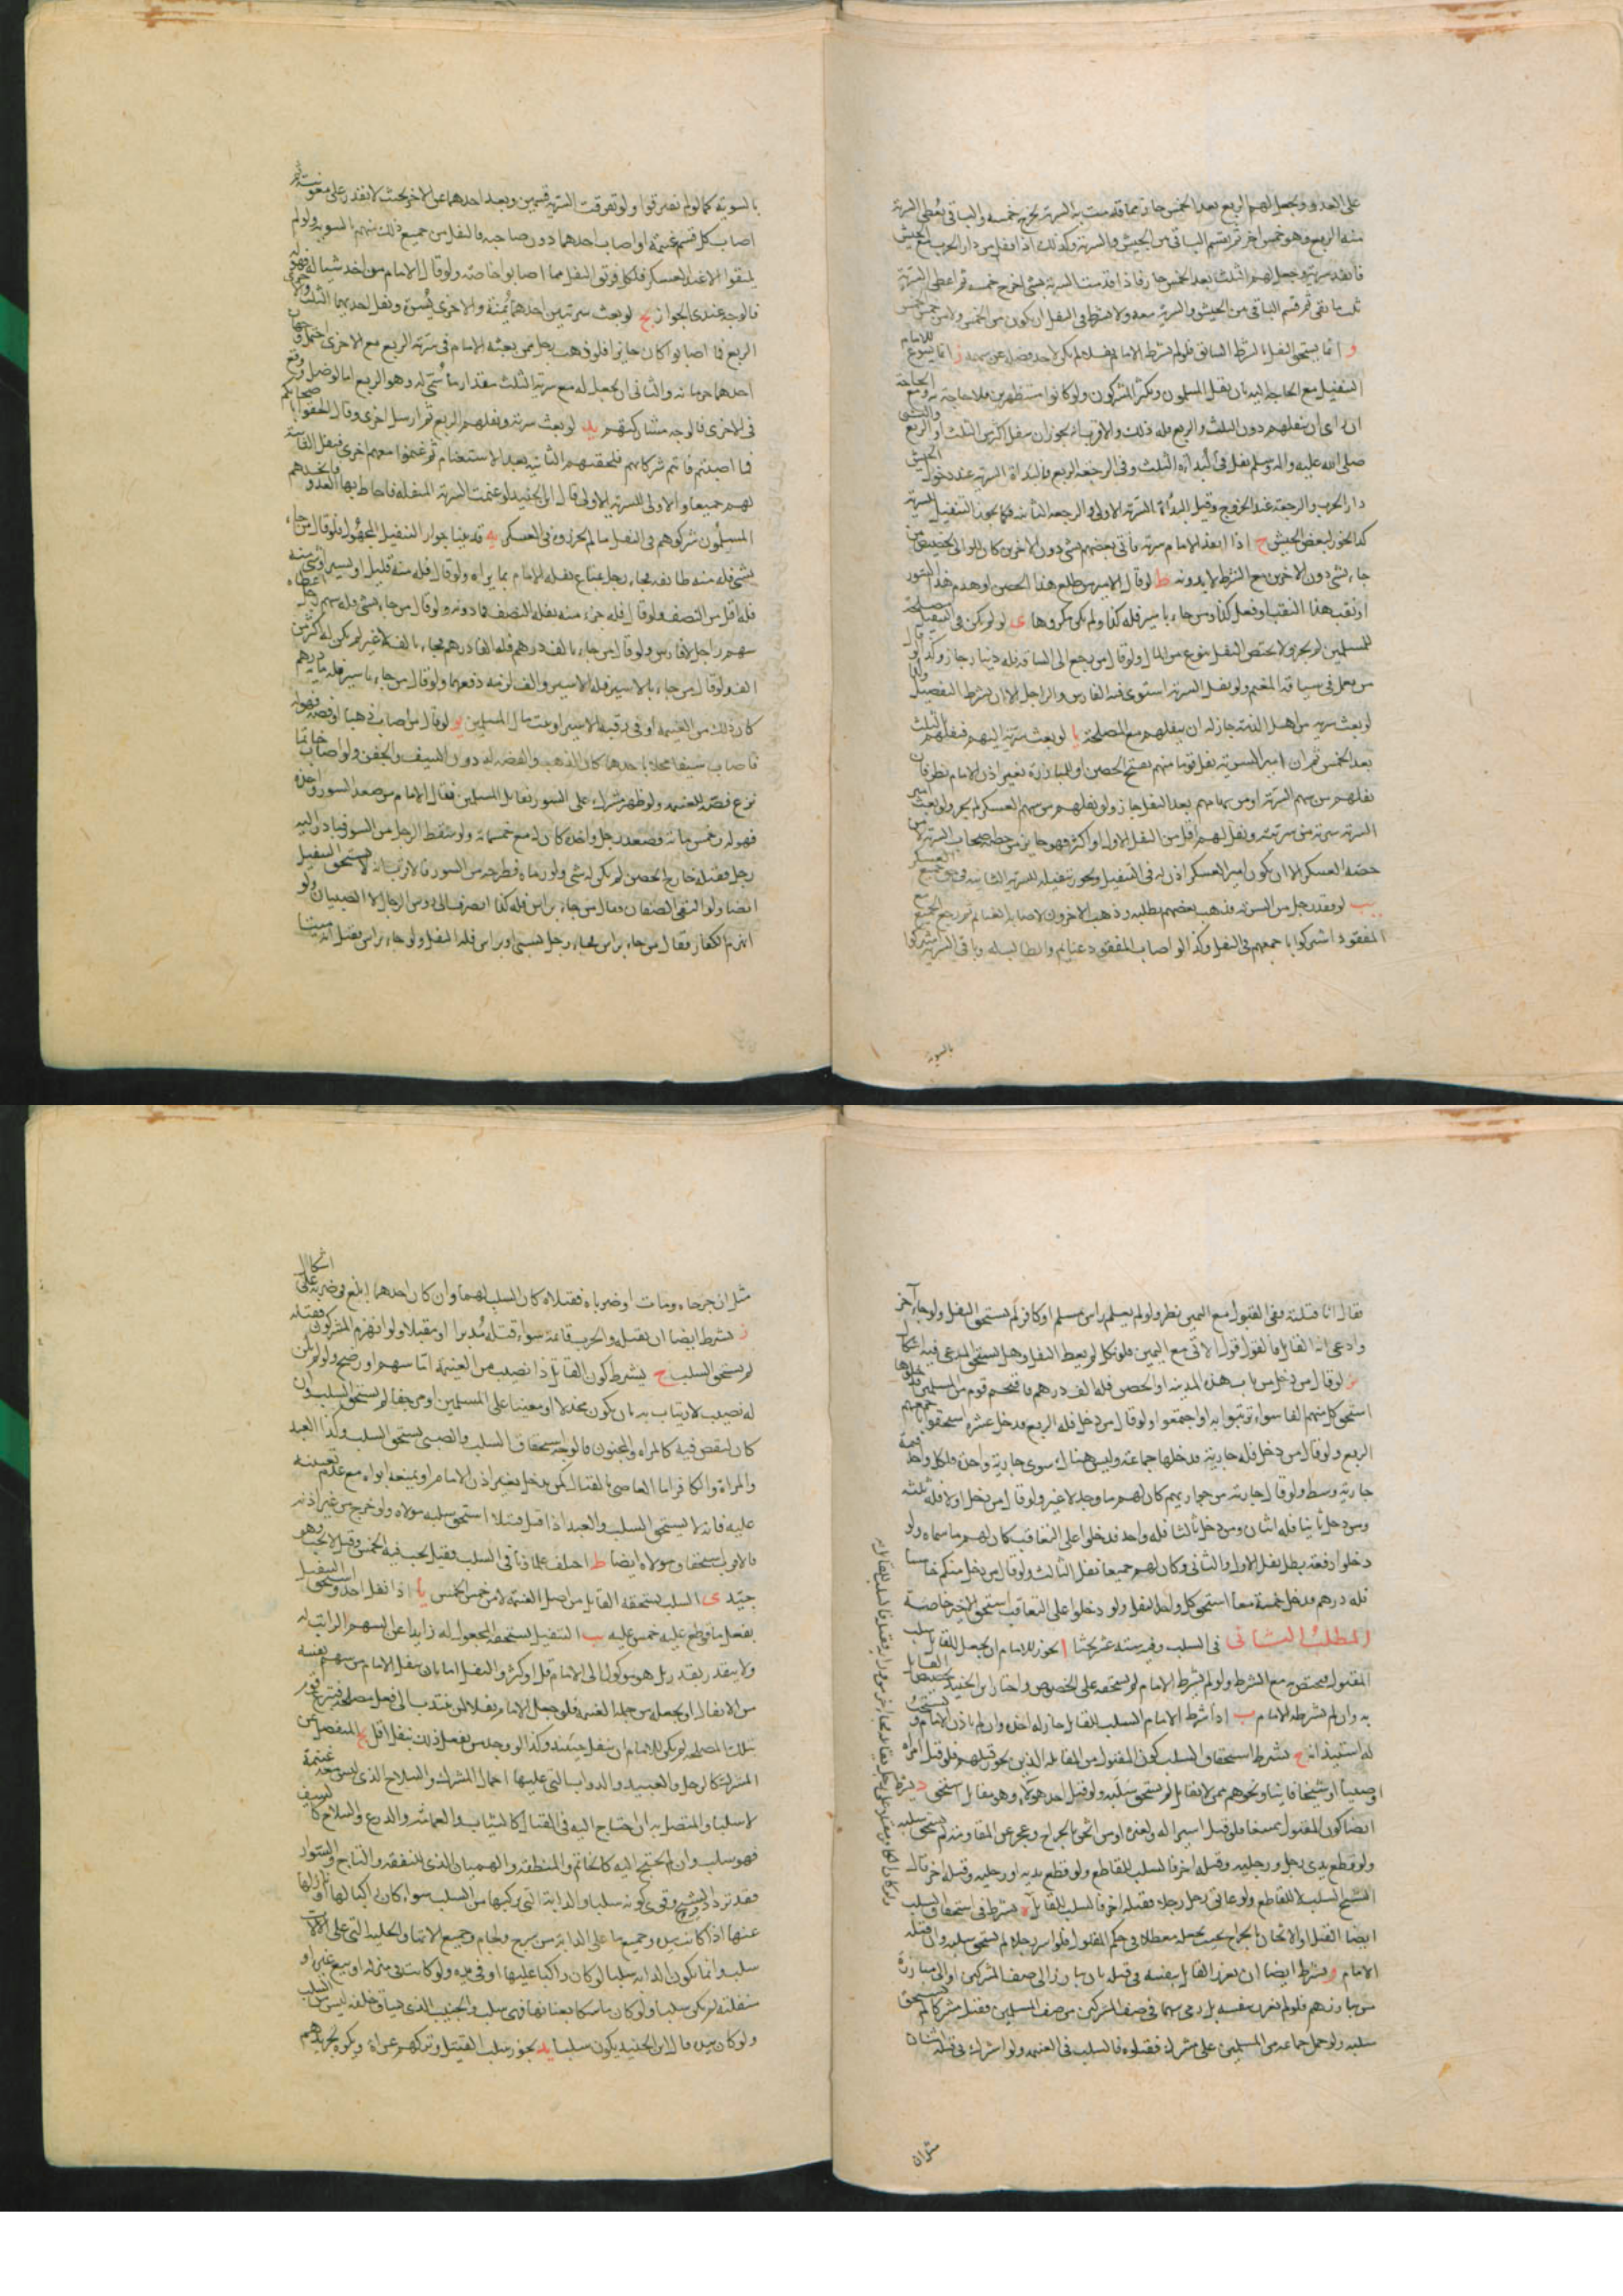 على العدو ويجعل لهم الربع بعد الخمس جاز فما قدمت به السرية يخرج خمسه والباقى يعطى السرية
منه الربع وهو خمس اخر ثم يقسم الباقى بين الجيش والسرية وكذلك اذا قفل من دار الحرب الجيش
فانفذ سرية وجعل لهم الثلث بعد الخمس جاز فاذا قدمت السرية بشى اخرج خمسه ثم اعطى السرية
ثلث ما بقى ثم قسم الباقى بين الجيش والسرية معه ولا يشترط فى النفل ان يكون من الخمس ولا من خمس الخمس
و انما يستحق النفل بالشرط السابق فلو لم يشرط الامام نفلا لم يكن لاحد فضل عن سهمه ز انما يسوغ للامام
التنفيل مع الحاجة اليه بان يقل المسلمون ويكثر المشركون ولو كانوا مستظهرين فلا حاجة به ومع الحاجة
ان راى ان ينفلهم دون الثلث والربع فله ذلك والاقرب انه يجوز ان ينفل اكثر من الثلث او الربع والنبى
صلى الله عليه واله وسلم نفل فى البداءة الثلث وفى الرجعة الربع فالبداة السرية عند دخول الجيش
دار الحرب والرجعة عند الخروج وقيل البداة السرية الاولى والرجعة الثانية فكما يجوز التنفيل للسرية
كذا يجوز لبعض الجيش ح اذا انفذ الامام سرية فاتى بعضهم بشى دون الاخرين كان للوالى تخصيص من
جاء بشى دون الاخرين مع الشرط لا بدونه ط لو قال الامير من طلع هذا الحصن او هدم هذا السور
او نقب هذا النقب او فعل كذا ومن جاء باسير فله كذا ولم يكن مكروها ى لو لم يكن فى التنفيل مصلحة
للمسلمين لم يجز ولا يختص النفل بنوع من المال ولو قال من رجع الى الساقة فله دينار جاز وكذا لو قال
من يعمل فى سياقة المغنم ولو نفل السرية استوى فيه الفارس والراجل الا ان يشرط التفضيل ولو
لو بعث سرية من اهل الذمة جاز له ان ينفلهم مع المصلحة يا لو بعث سرية اليهم فنفلهم الثلث
بعد الخمس ثم ان امير السرية نفل قوما منهم بفتح الحصن او للمبارزة بغير اذن الامام نظر فان
نفلهم من سهم السرية او من سهامهم بعد النفل جاز ولو نفلهم من سهم العسكر لم يجز ولو بعث امير
السرية سرية من سريته ونفل لهم اقل من النفل الاول او اكثر فهو جايز من حصة اصحاب السرية لا من
حصة العسكر الا ان يكون امير العسكر اذن له فى التنفيل ويجوز تنفيله للسرية الثانية فى حق جميع العسكر
يب لو فقد رجل من السرية فذهب بعضهم بطلبه وذهب الاخرون لاصابة الغنائم ثم رجع الجميع مع
المفقود اشتركوا باجمعهم فى النفل وكذا لو اصاب المفقود غنايم والطالب له وباقى السرية اشتركوا
بالسوية
بالسوية كما لو لم يفترقوا ولو تفرقت السرية قسمين وبعد احدهما عن الاخر بحيث لا يقدر على معونته ثم
اصاب كل قسم غنيمة او اصاب احدهما دون صاحبه فالنفل من جميع ذلك بينهم بالسوية ولو لم
يلتقوا الا عند العسكر فلكل فريق النفل مما اصابوا خاصة ولو قال الامام من اخذ شيئا فهو له
فالوجه عندى الجواز يج لو بعث سريتين احدهما يمنة والاخرى يسرة ونفل احدهما الثلث والاخرى
الربع فما اصابوا كان جايزا فلو ذهب رجل ممن بعثه الامام فى سرية الربع مع الاخرى احتمل وجهان
احدهما حرمانه والثانى ان يجعل له مع سرية الثلث مقدار ما سمى له وهو الربع اما لو ضل ووقع
فى الاخرى فالوجه مشاركتهم يد لو بعث سرية ونفلهم الربع ثم ارسل اخرى وقال الحقوا باصحابكم
فما اصبتم فانتم شركاؤهم فلحقتهم الثانية بعد الاستغنام ثم غنموا معهم اخرى فنفل الثانية
لهم جميعا والاولى للسرية الاولى قال ابن الجنيد لو غنمت السرية المنفلة فاحاط بها العدو فانجدهم
المسلمون شركوهم فى النفل ما لم يحرزوه فى العسكر يه قد بينا جواز التنفيل المجهول فلو قال من جاء
بشى فله منه طائفة فجاء رجل بمتاع نفله الامام بما يراه ولو قال فله منه قليل او يسير او شى منه
فله اقل من النصف ولو قال فله جزء منه نفله النصف فما دونه ولو قال من جاء بشى فله سهم رجل اعطاه
سهم راجل لا فارس ولو قال من جاء بالف درهم فله الفا درهم فجاء بالف لا غير لم يكن له اكثر من
الف ولو قال من جاء بالاسير فله الاسير والف لزمه دفعهما ولو قال من جاء باسير فله مائة درهم
كان ذلك من الغنيمة او فى رقبة الاسير او بيت مال المسلمين يو لو قال من اصاب ذهبا او فضة فهو له
فاصاب سيفا محلا باحدهما كان الذهب والفضة له دون السيف والجفن ولو اصاب خاتما
نزع فصه للغنيمة ولو ظهر مشرك على السور يقاتل المسلمين فقال الامام من صعد السور واخذه
فهو له وخمس مائة فصعد رجل واخذه كان له مع خمسمائة ولو سقط الرجل من السور فبادر اليه
رجل فقتله خارج الحصن لم يكن له شى ولو رماه فطرحه من السور فالاقرب انه لا يستحق التنفيل
ايضا ولو التقى الصفان وقال من جاء براس فله كذا انصرف الى رؤس الرجال لا الصبيان ولو
انهزم الكفار فقال من جاء براس فجاء رجل بسبى او براس فله النفل ولو جاء براس فقيل انه كان ميتا
قال انا قتلته ففى القبول مع اليمين نظر ولو لم يعلم راس مسلم او كافر لم يستحق النفل ولو جاء آخر
وادعى انه القاتل فالقول قول الآتى مع اليمين فلو نكل لم يعط النفل وهل يستحق المدعى فيه اشكال
يز لو قال من دخل من باب هذه المدينة او الحصن فله الف درهم فاقتحم قوم من المسلمين فدخلوها
استحق كل منهم الفا سواء ترتبوا به او اجتمعوا ولو قال من دخل فله الربع فدخل عشرة استحقوا جميعهم
الربع ولو قال من دخل فله جارية فدخلها جماعة وليس هناك سوى جارية واحدة فلكل واحد قيمة
جارية وسط ولو قال جارية من جواريهم كان لهم ما وجد لا غير ولو قال من دخل اولا فله ثلثة
ومن دخل ثانيا فله اثنان ومن دخل ثالثا فله واحد فدخلوا على التعاقب كان لهم ما سماه ولو
دخلوا دفعة بطل نفل الاول والثانى وكان لهم جميعا نفل الثالث ولو قال من دخل منكم خامسا
فله درهم فدخل خمسة معا استحق كل واحد النفل ولو دخلوا على التعاقب استحق الاخير خاصة
المطلب الثانى فى السلب وفيه ستة عشر بحثا ا يجوز للامام ان يجعل للقاتل سلب
المقتول فيختص به مع الشرط ولو لم يشرط الامام لم يستحقه على الخصوص واختار ابن الجنيد تخصيص القاتل
به وان لم يشرطه الامام ب اذا شرط الامام السلب للقاتل جاز له اخذه وان لم ياذن الامام ويستحب
له استيذانه ج يشترط استحقاق السلب كون المقتول من المقاتلة الذين يجوز قتلهم فلو قتل امراة
او صبيا او شيخا فانيا ونحوهم ممن لا يقاتل لم يستحق سلبه ولو قتل احد هولاء وهو مقاتل استحق د يشترط
ايضا كون المقتول ممتنعا فلو قتل اسيرا له ولغيره او من اثخن بالجراح وعجز عن المقاومة لم يستحق سلبه
ولو قطع يدى رجل ورجليه وقتله اخر فالسلب للقاطع ولو قطع يديه او رجليه وقتله اخر قال
الشيخ السلب للقاطع ولو عانق رجل رجلا فقتله اخر فالسلب للقاتل ه يشترط فى استحقاق السلب
ايضا القتل او الاثخان بالجراح بحيث يجعله معطلا فى حكم المقتول فلو اسر رجلا لم يستحق سلبه وان قتله
الامام و يشترط ايضا ان يغرر القاتل بنفسه فى قتله بان يبارز الى صف المشركين او الى مبارزة
من يبارزهم فلو لم يغرر بنفسه بل رمى سهما فى صف المشركين من صف المسلمين فقتل مشركا لم يستحق
سلبه ولو حمل جماعة من المسلمين على مشرك فقتلوه فالسلب فى الغنيمة ولو اشترك فى قتله اثنان
مثل ان
مثل ان جرحاه ومات او ضرباه فقتلاه كان السلب لهما وان كان احدهما ابلغ فى ضربه على اشكال
ز يشترط ايضا ان يقتله والحرب قائمة سواء قتله مدبرا او مقبلا ولو انهزم المشركون فقتله
لم يستحق السلب ح يشترط كون القاتل ذا نصيب من الغنيمة اما سهم او رضخ ولو لم يكن
له نصيب لارتياب به بان يكون مخذلا او معينا على المسلمين او مرجفا لم يستحق السلب وان
كان لنقص فيه كالمراة والمجنون فالوجه استحقاق السلب والصبى يستحق السلب وكذا العبد
والمراة والكافر اما العاصى بالقتال كمن يدخل بغير اذن الامام او يمنعه ابواه مع عدم تعيينه
عليه فانه لا يستحق السلب والعبد اذا قتل قتيلا استحق سلبه مولاه ولو خرج من غير اذنه
فالاقرب استحقاق مولاه ايضا ط اختلف علماؤنا فى السلب فقيل يجب فيه الخمس وقيل لا يجب وهو
جيد ى السلب يستحقه القاتل من اصل الغنيمة لا من خمس الخمس يا اذا نفل احد وجب التنفيل استحق
بفعل ما وقع عليه خمس عليه يب التنفيل يستحقه المجعول له زايدا عن السهم الراتب له
ولا يتقدر بقدر بل هو موكول الى الامام قل او كثر والنفل اما بان ينفل الامام من سهم نفسه
من الانفال او يجعله من جملة الغنيمة فلو جعل الامام نفلا لمن ينتدب الى فعل مصلحة فتبرع قوم
بتلك المصلحة لم يكن للامام ان ينفل حينئذ وكذا لو وجد من يفعل ذلك بنفل اقل يج المنفصل عن
المشرك كالرحل والعبيد والدواب التى عليها احمال المشرك والسلاح الذى ليس معه غنيمة
لا سلبا والمتصل به ان احتاج اليه فى القتال كالثياب والعمامة والدرع والسلاح كالسيف
فهو سلب وان لم يحتج اليه كالخاتم والمنطقة والهميان الذى للنفقة والتاج والسوار
فقد تردد الشيخ وقوى كونه سلبا والدابة التى يركبها من السلب سواء كان راكبا لها او نازلا
عنها اذا كانت بيده وجميع ما على الدابة من سرج ولجام وجميع الاتها والحلية التى على الالات
سلب وانما يكون الدابة سلبا لو كان راكبا عليها او فى يده ولو كانت فى منزله او بيع غيره او
منفلتة لم يكن سلبا ولو كان ماسكا بعنانها فهى سلب والجنيب الذى يساق خلفه ليس من السلب
ولو كان بيده قال ابن الجنيد يكون سلبا يد يجوز سلب القتيل وتركهم عراة ويكره تجريدهم